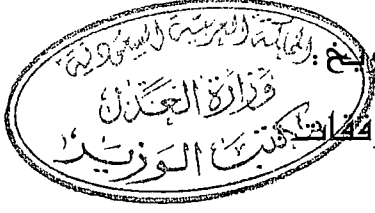 المملكة العربية السعودية
يخ :
وزارة العدل
فقات
مكتب الوزير